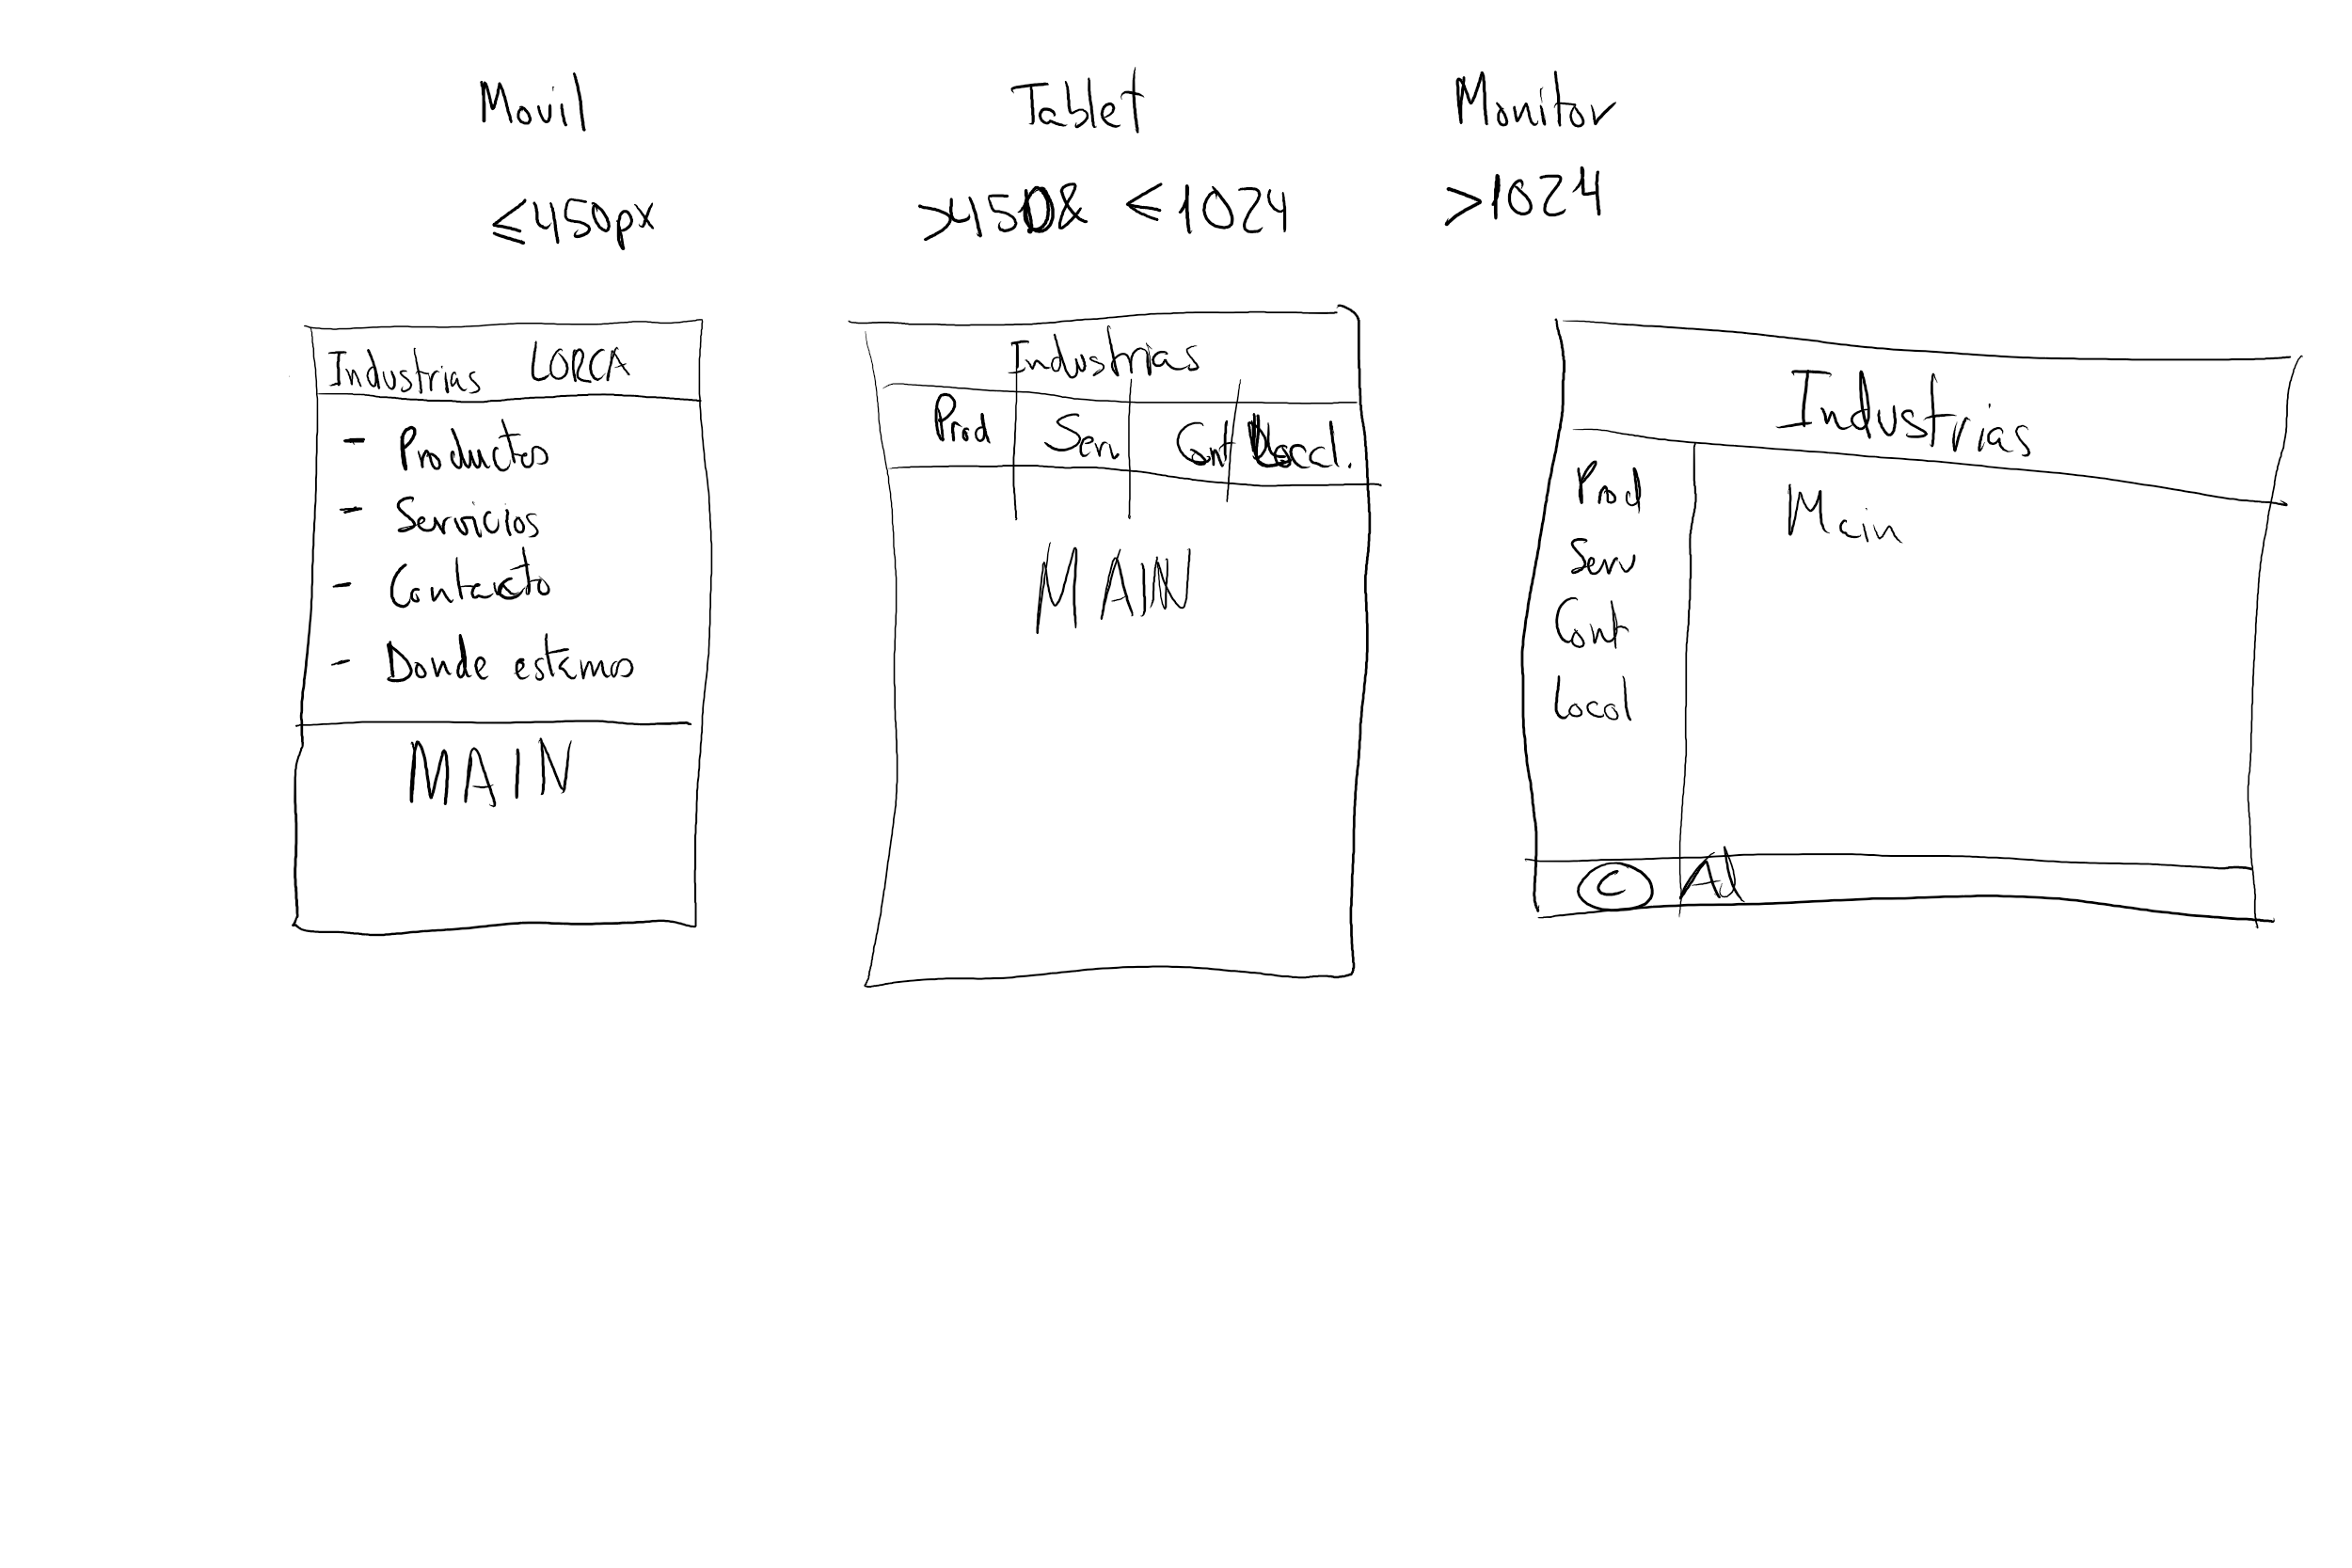 Movil
≤450px
Industrias LORCA
- Productos
- Servicios
- Contacto
- Donde estamos
MAIN
Tablet
>450& ≤1024
Industrias
Prod Serv Cont Local.
MAIN
Monitor
>1024
Industrias
Prod
Serv
Cont
Local
Main
©